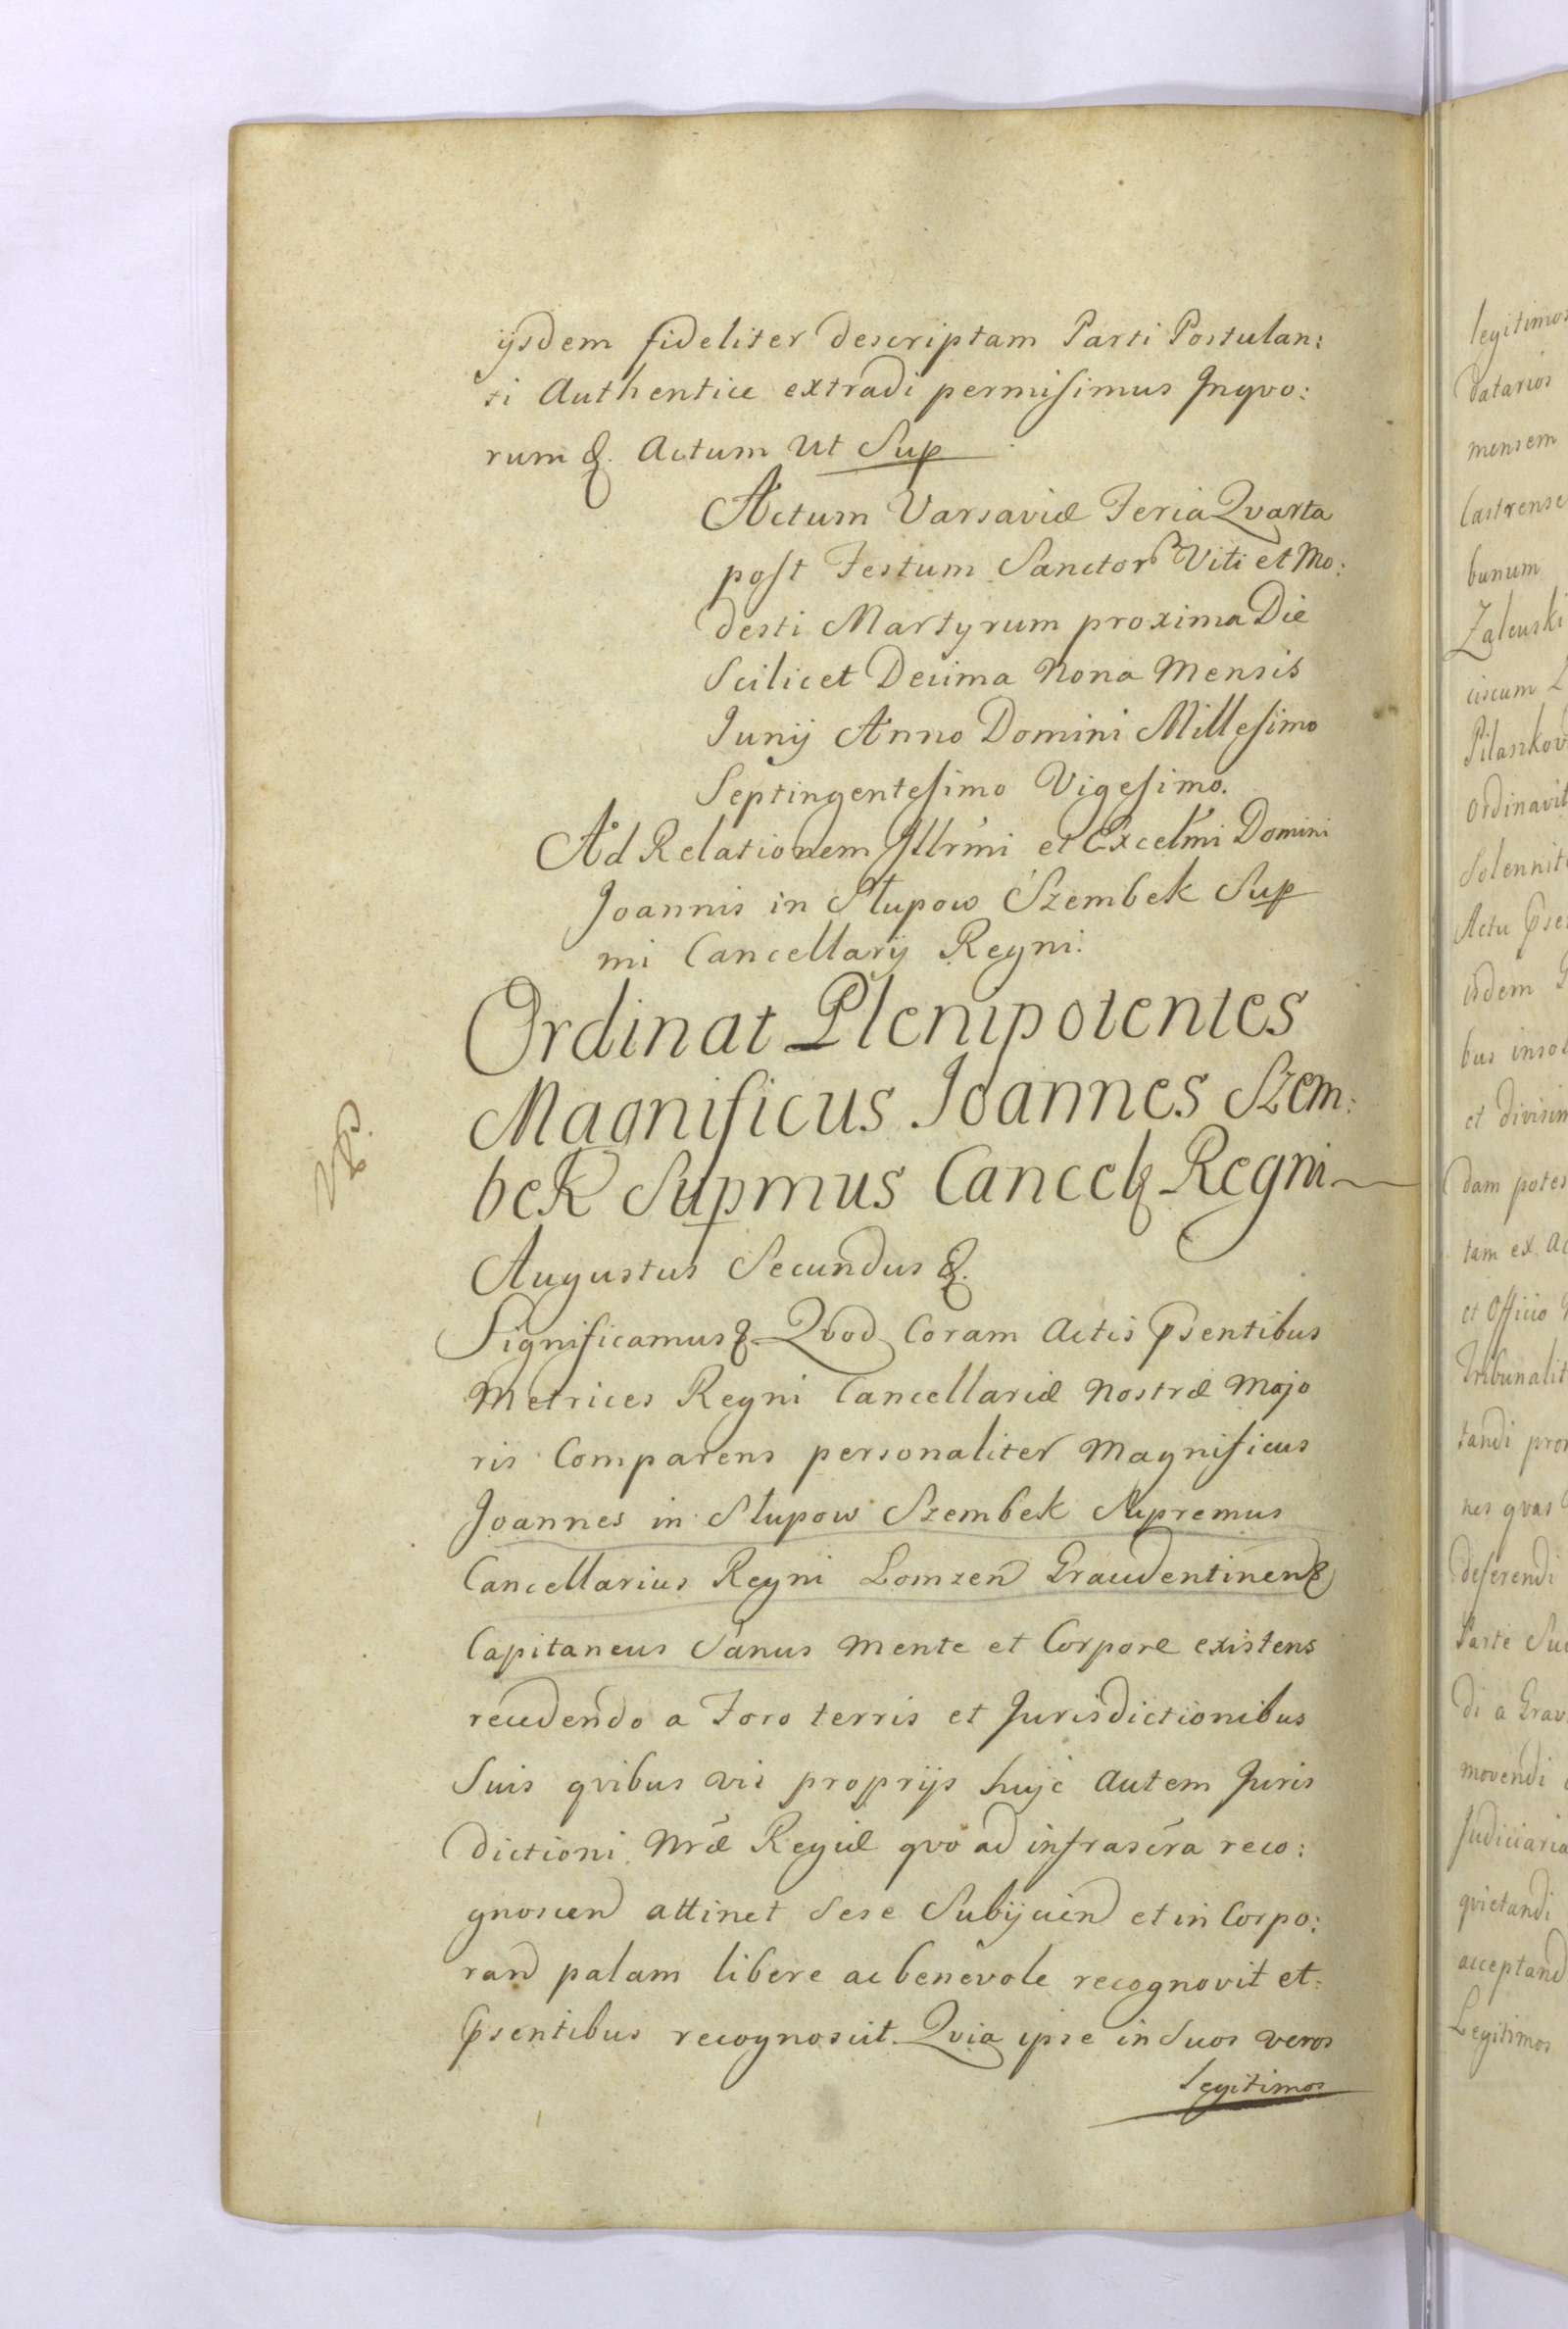 ijsdem fideliter descriptam Parti Postulan:
ti Authentice extradi permisimus Inqvo:
rum &. Actum Ut Sup
Actum Varsaviæ Feria Qvarta
post Festum Sanctor Viti et Mo:
desti Martyrum proxima Die
Scilicet Decima Nona Mensis
Junij Anno Domini Millesimo
Septingentesimo Vigesimo.
Ad Relationem Illrmi et Excelmi Domini
Joannis in Słupow Szembek Sup
mi Cancellarij Regni.
Ordinat Plenipotentes
Magnificus Joannes Szem:
bek Supmus Cancel Regni
Augustus Secundus &.
Significamus & Qvod Coram Actis Psentibus
Metrices Regni Cancellariæ Nostræ Majo
ris Comparens personaliter Magnificus
Joannes in Słupow Szembek Supremus
Cancellarius Regni Lomzen Graudentinen &
Capitaneus Sanus Mente et Corpore existens
recedendo a Foro terris et Jurisdictionibus
Suis qvibus vis proprijs hujc Autem Juris
dictioni Nræ Regiæ qvo ad infrascra reco:
gnoscen attinet Sese Subijcien et in Corpo:
ran palam libere ac benevole recognovit et
Psentibus recognoscit. Qvia ipse in Suos veros
legitimos
legitimos
datarios
mensem
Castrense
bunum
Zaleuski
ciscum
Pilaskov
Ordinavit
Solennit
Actu Pse
isdem
bus insol
et divisim
dam potes
tam ex Ac
et Officio
Tribunalit
tandi pro
nes qvas
deferendi
Parte Su
di a Grav
movendi
Judiciaria
qvietandi
acceptand
Legitimos